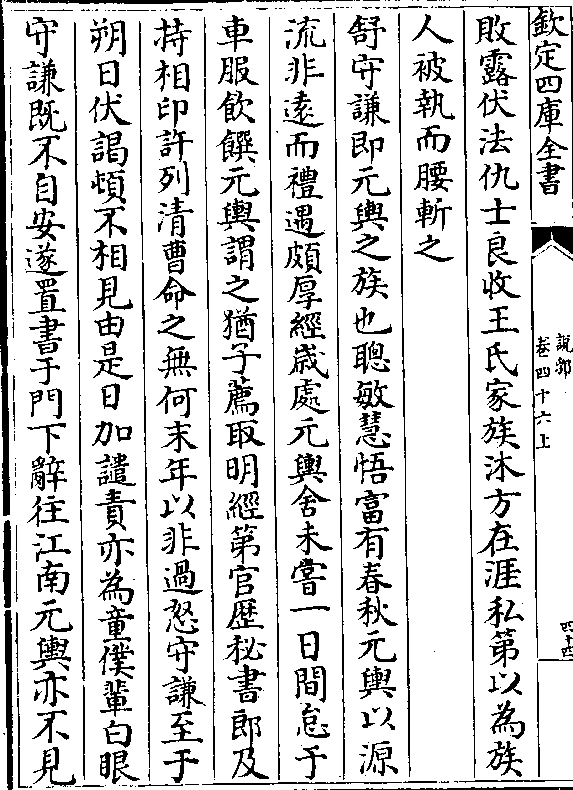 欽定四庫全書
説郛
卷四十六上
四十四
敗露伏法仇士良收王氏家族沐方在涯私第以為族
人被執而腰斬之
舒守謙即元輿之族也聰敏慧悟富有春秋元輿以源
流非逺而禮遇頗厚經歳處元輿舍未嘗一日間怠于
車服飲饌元輿謂之猶子薦取明經第官歴秘書郎及
持相印許列清曹命之無何末年以非過怒守謙至于
朔日伏謁頓不相見由是日加譴責亦為童僕輩白眼
守謙既不自安遂置書于門下辭往江南元輿亦不見